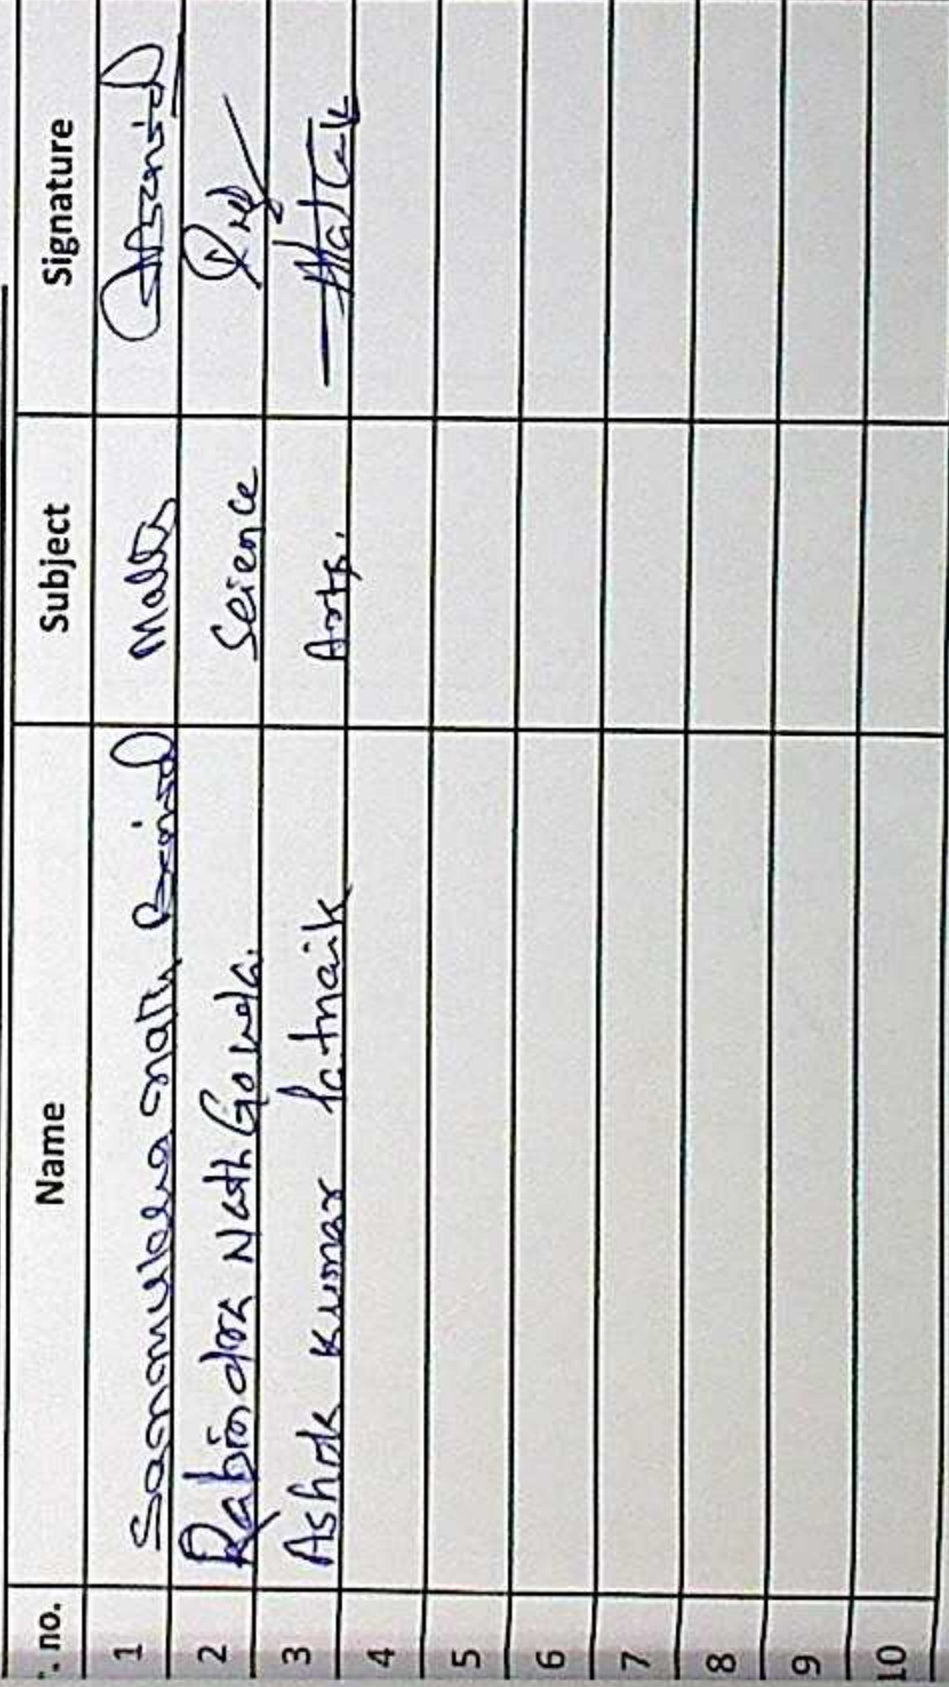 . no. Name Subject Signature
1 Nath Maths
2 Rabindra Nath Gowda. Science
3 Ashok Kumar Patnaik Arts.
4
5
6
7
8
9
10